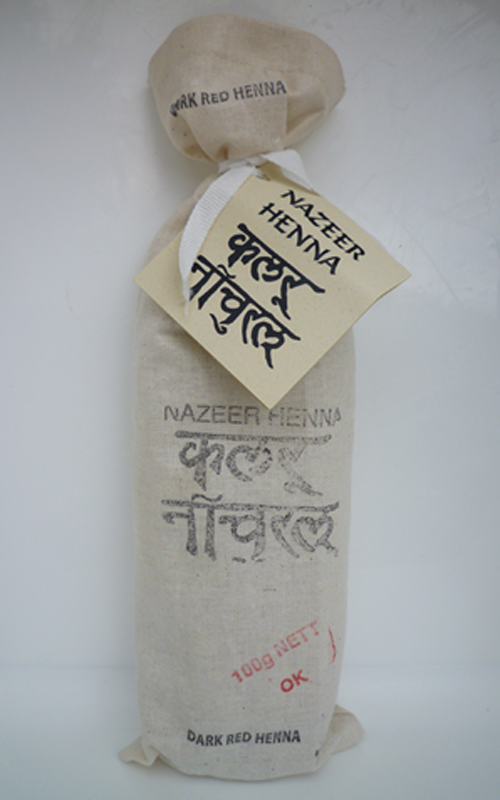 DARK RED HENNA
NAZEER
HENNA
कलर
नॉचुरल
NAZEER HENNA
कलर
नॉचुरल
100g NETT
OK
DARK RED HENNA